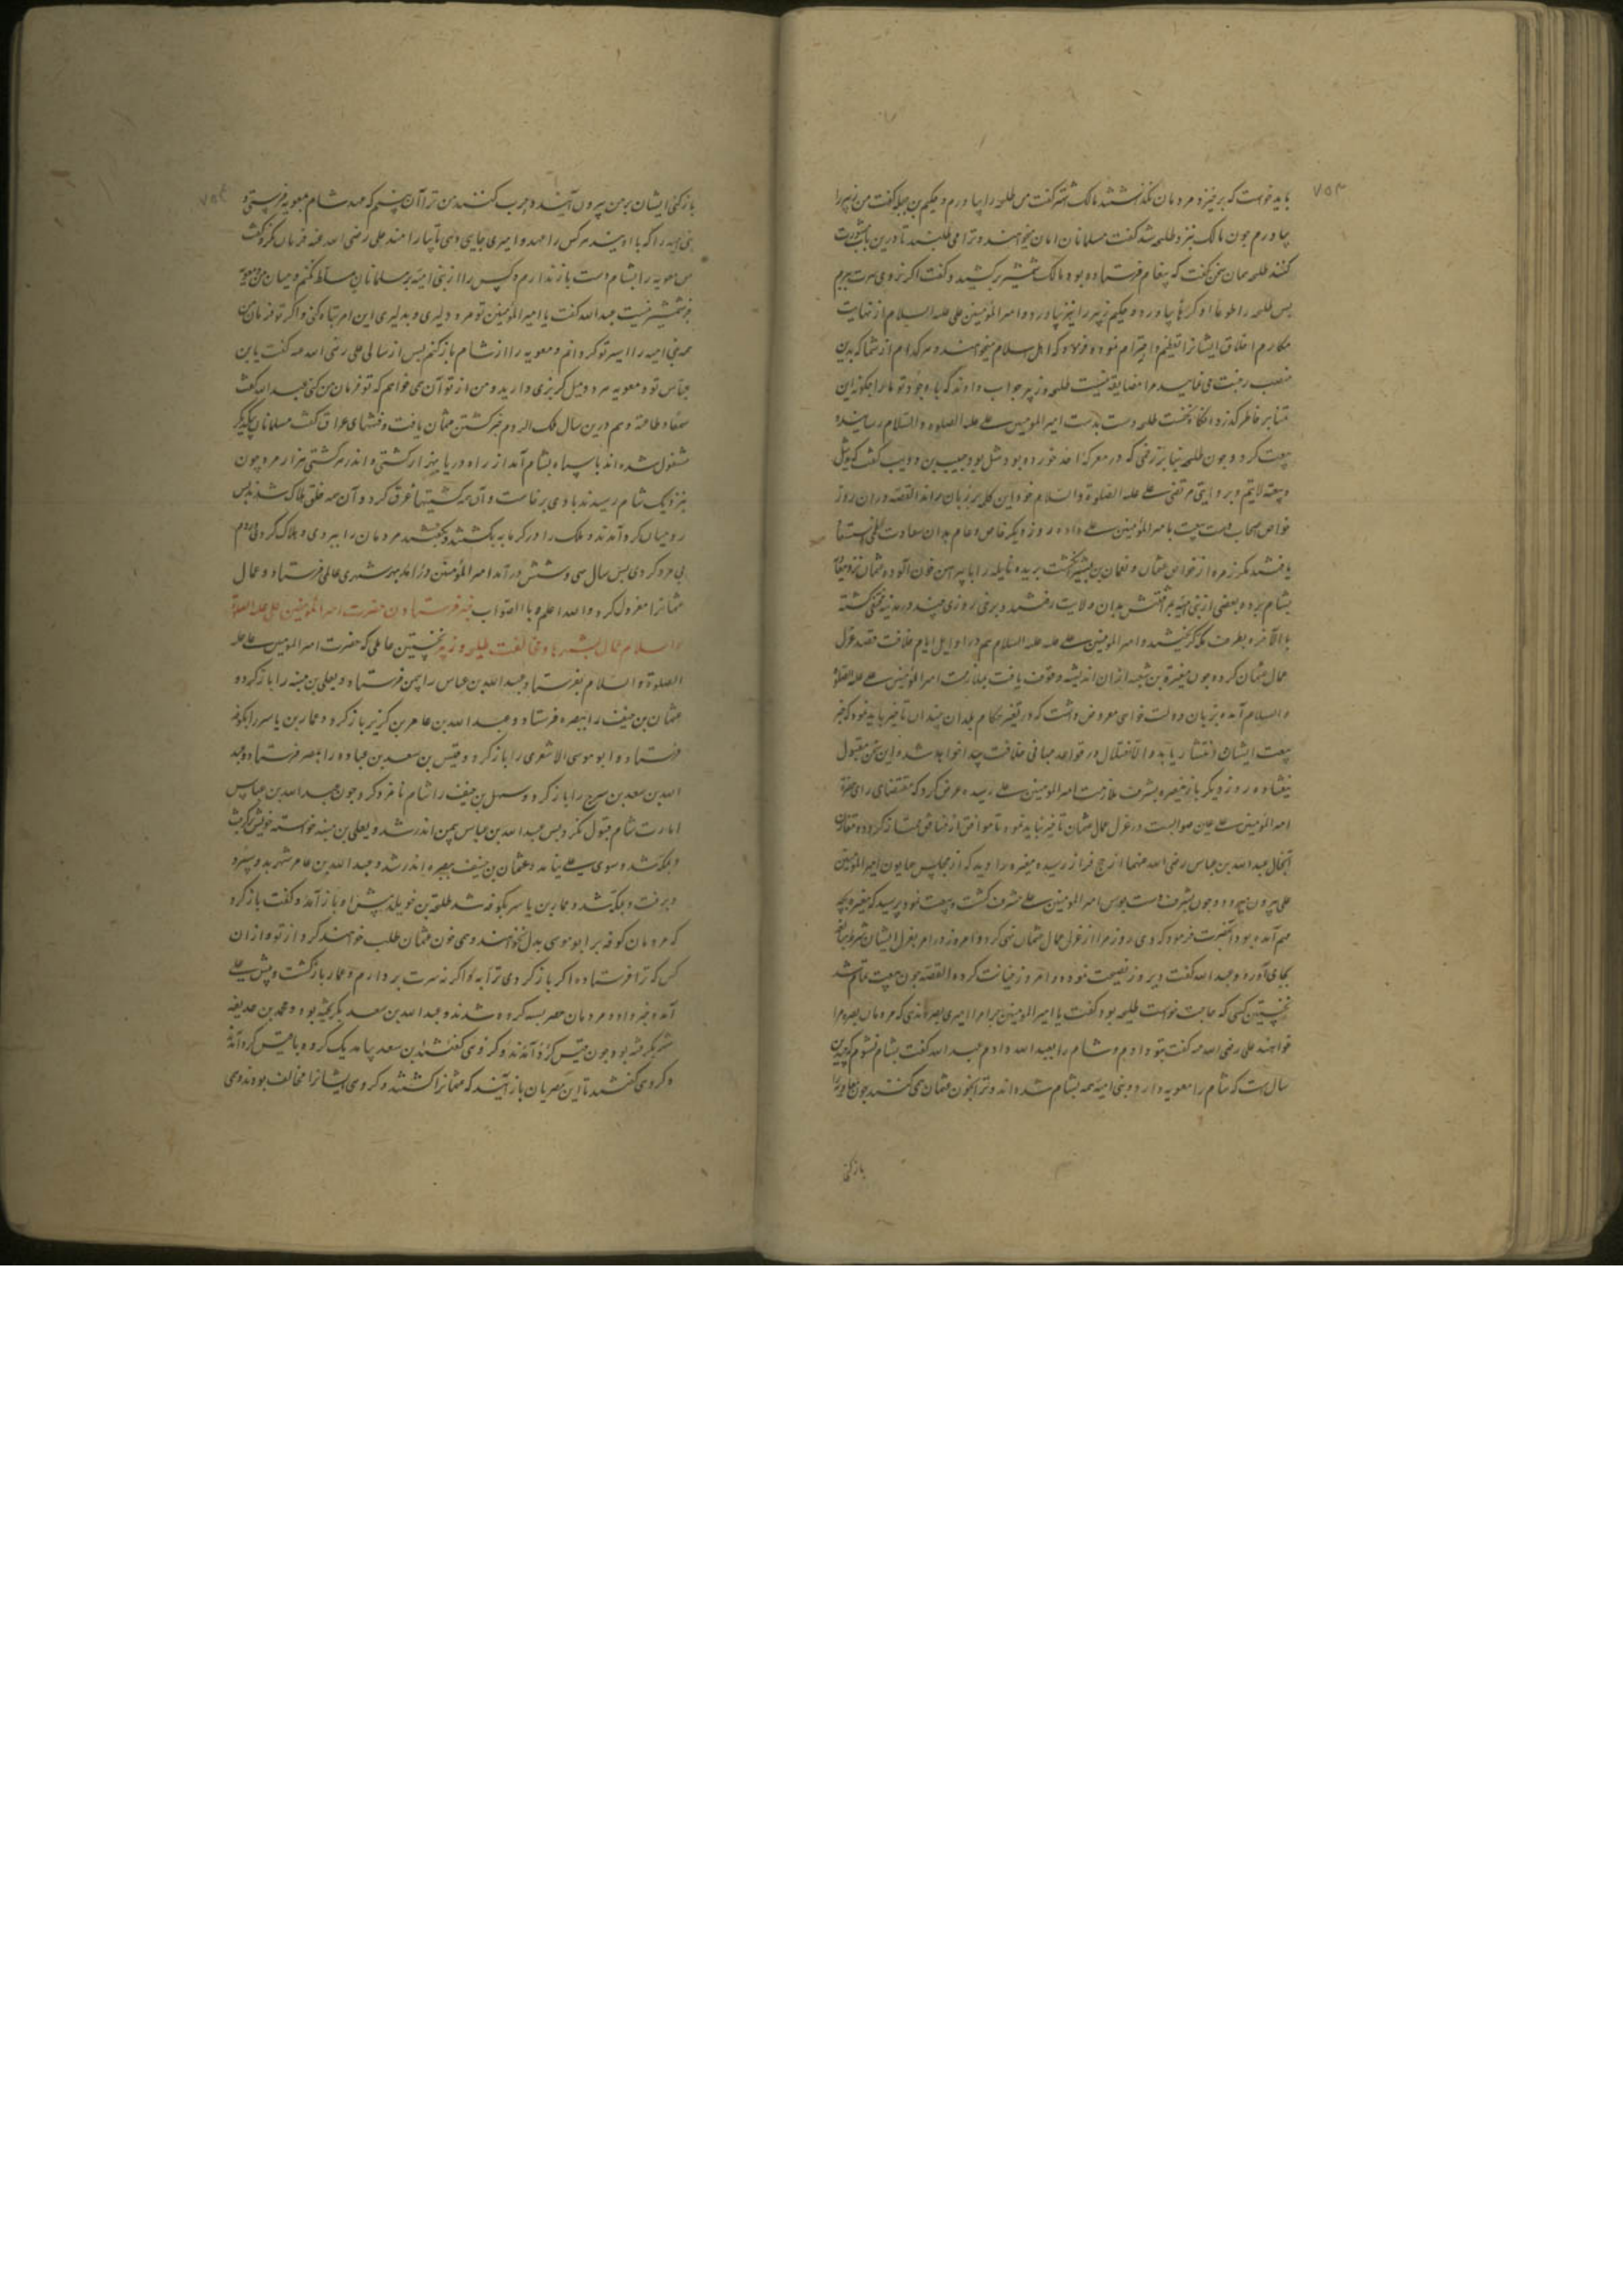 ۷۵۳
باید خواست که برخیزد مردمان نگذاشتند مالک اشتر گفت من طلحه را بیاورم و حکیم بن جبله گفت من زبیر را
بیاورم جون مالک بنزد طلحه شد گفت مسلمانان امان میخواهند و ترا می طلبند تا درین باب مشورت
کنند طلحه همان سخن گفت که پیغام فرستاده بود مالک شمشیر برکشید و گفت اکر نروی سرت ببرم
بس طلحه را طوعا او کرها بیاورد و حکیم زبیر را نیز بیاورد و امیر المؤمنین علی علیه السلام از نهایت
مکارم اخلاق ایشانرا تعظیم و احترام نموده فرمود که اهل اسلام میخواهند و هر کدام از شما که بدین
منصب رغبت می نمایید مرا مضایقه نیست طلحه و زبیر جواب دادند که با وجود تو ما را جکونه این
تمنا بر خاطر کذرد انکاه نخست طلحه دست بدست امیر المومنین علی علیه الصلوه و السلام رسانیده
بیعت کرد و جون طلحه بنا بر زخمی که در معرکه احد خورده بود شل بود حبیب بن ذویب گفت که ید شل
و بیعة لایتم و بر وایتی مرتضی علی علیه الصلوة و السلام خود این کلمه بر زبان راند القصه در ان روز
خواص اصحاب دست بیعت بامیر المؤمنین علی داده روز دیکر خاص و عام بدان سعادت
یافتند مکر زمره از خواص عثمان و نعمان بن بشیر انکشت بریده نایله را با پیراهن خون آلوده عثمان نزد معویه
بشام برده بعضی از بنی امیه بدان ولایت رفتند و برخی روزی چند در مدینه مختفی کشته
بالآخره بطرف مکه کریختند و امیر المؤمنین علی علیه السلام هم در اوایل ایام خلافت قصد عزل
عمال عثمان کرده جون مغیرة بن شعبه از ان اندیشه وقوف یافت بملازمت امیر المؤمنین علی علیه الصلوة
و السلام آمده بزبان دولت خواهی معروض داشت که در تغییر حکام بلدان چندان تاخیر باید نمود که خبر
بیعت ایشان انتشار یابد و الا اختلال در قواعد مبانی خلافت پیدا خواهد شد و این سخن مقبول
نیفتاده روز دیکر باز مغیره بشرف ملازمت امیر المومنین علی رسیده عرض کرد که مقتضای رای حضرة
امیر المؤمنین علی عین صوابست در عزل عمال عثمان تاخیر نباید نمود تا موافق از منافق ممتاز کردد مقارن
آنحال عبد الله بن عباس رضی الله عنهما از حج فراز رسیده مغیره را دید که از مجلس همایون امیر المؤمنین
علی بیرون میرود و جون بشرف دست بوس امیر المومنین علی مشرف کشت و بیعت نمود پرسید که مغیره بچه
مهم آمده بود آنحضرت فرمود که وی روز مرا از عزل عمال عثمان نهی کرد و امروز در امر بعزل ایشان شرط مبالغه
بجای آورد عبد الله گفت دیروز نصیحت نمود و امروز خیانت کرد و القصه جون بیعت تمام شد
نخستین کسی که حاجت خواست طلحه بود گفت یا امیر المومنین مرا امیری بصره ده که مردمان بصره مرا
خواهند علی رضی الله عنه گفت بتو دادم و شام را بعبد الله دادم عبد الله گفت بشام نشوم که چندین
سال است که شام را معویه دارد و بنی امیه همه بشام شده اند و ترا بخون عثمان می کنند جون معویه را
بازکنی
۷۵۴
بازکنی ایشان بر من بیرون آیند و حرب کنند من ترا آن بینم که عهد شام بمعویه فرستی و
بنی امیه را که با او یند هر کس را عهد و امیری جایی دهی تا بیارامند علی رضی الله عنه فرمان نکرد و گفت
من معویه را بشام دست باز ندارم و کس را از بنی امیه بر مسلمانان مسلط نکنم و میان من و معویه
جز شمشیر نیست عبد الله گفت یا امیر المؤمنین تو مرد دلیری و بدلیری این امر تباه کنی و اکر تو فرمان من
همه بنی امیه را اسیر تو کردانم و معویه را از شام باز کنم پس از سالی علی رضی الله عنه گفت یا ابن
عباس تو و معویه هر دو میل کربزی دارید و من از تو آن می خواهم که تو فرمان من کنی عبد الله گفت
سمعا و طاعة و هم درین سال ملک الروم خبر کشتن عثمان یافت و فتنهای عراق گفت مسلمانان بیکدیکر
مشغول شده اند با سپاه بشام آمد از راه دریا بهزار کشتی و اندر هر کشتی هزار مرد چون
بنزدیک شام رسیدند بادی برخاست و آن همه کشتیها غرق کرد و آن همه خلق هلاک شدند پس
رومیان کرد آمدند و ملک را در کرمابه بکشتند و گفتند مردمان را ببردی و هلاک کردی و روم
بی مرد کردی پس سال سی و شش در آمد امیر المؤمنین در اند بهر شهری عاملی فرستاد و عمال
عثمانرا معزول کرد و الله اعلم بالصواب خبر فرستادن حضرت امیر المؤمنین علی علیه الصلوة
و السلام عمال بشهرها و مخالفت طلحه و زبیر نخستین عاملی که حضرت امیر المومنین علی علیه
الصلوة و السلام بفرستاد عبد الله بن عباس را بیمن فرستاد و یعلی بن منبه را باز کرد و
عثمان بن حنیف را ببصره فرستاد و عبد الله بن عامر بن کریز باز کرد و عمار بن یاسر را بکوفه
فرستاد و ابو موسی الاشعری را باز کرد و قیس بن سعد بن عباده را بمصر فرستاد و عبد
الله بن سعد بن سرح را باز کرد و سهل بن حنیف را بشام نامزد کرد جون عبد الله بن عباس
امارت شام قبول نکرد پس عبد الله بن عباس بیمن اندر شد و یعلی بن منبه خواسته خویش برکرفت
و بمکه شد و سوی علی نیامد و عثمان بن حنیف ببصره اندر شد و عبد الله بن عامر شهر بدو سپرد
و برفت و بمکه شد و عمار بن یاسر بکوفه شد طلحة بن خویلد پیش او باز آمد و گفت باز کرد
که مردمان کوفه بر ابو موسی بدل نخواهند و می خون عثمان طلب خواهند کرد از تو و از ان
کس که ترا فرستاده اکر باز کردی ترا به و اکر نه سرت بردارم عمار بازکشت و پیش علی
آمد و خبر داد و مردمان مصر بسه کروه شدند و عبد الله بن سعد بکریخته بود و محمد بن حذیفه
شهر بکرفته بود جون قیس کرد آمدند و کروهی گفتند بن سعد بیامد یک کروه با قیس کرد آمدند
و کروهی گفتند تا این مصریان باز آیند که عثمانرا کشتند و کروهی ایشانرا مخالف بودند و می